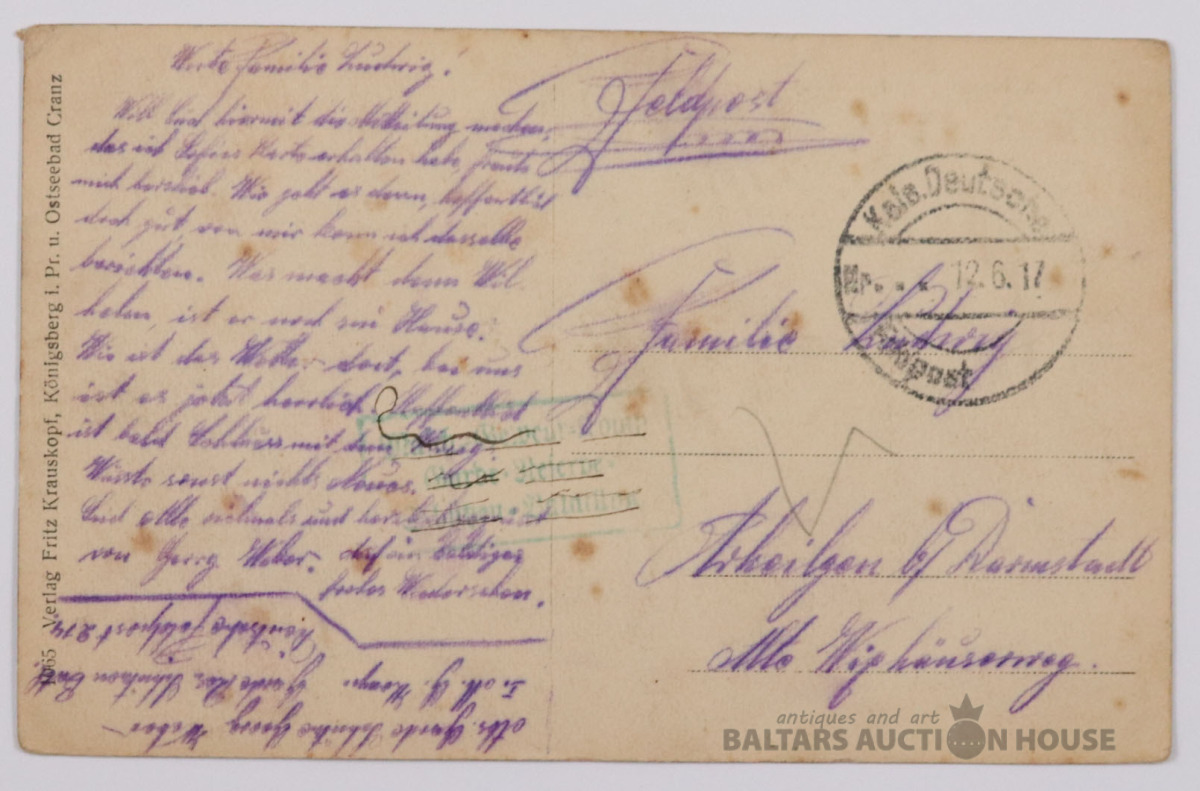 Werte Familie Ludwig.
Will Euch hiermit die Mitteilung machen,
das ich Eure Karte erhalten habe, freute
mich herzlich. Wie geht es denn, hoffentlich
doch gut, von mir kann ich dasselbe
berichten. Was macht denn Wil-
helm, ist er noch zu Hause.
Wie ist das Wetter dort, bei uns
ist es jetzt herrlich. Hoffentlich
ist bald Schluss mit dem Krieg.
Wüsste sonst nichts Neues.
Seid Alle vielmals und herzlich gegrüsst
von Georg Weber. Auf ein baldiges
frohes Wiedersehen.
Feldpost
Familie Ludwig
Arheilgen b/ Darmstadt
Alte Wixhäuserweg.
Kais. Deutsche
Nr. . . . 12.6.17
Feldpost
1065 Verlag Fritz Krauskopf, Königsberg i. Pr. u. Ostseebad Cranz
Garde Schütze Georg Weber
Garde Res. Schützen Batl.
Deutsche Feldpost 274
antiques and art
BALTARS AUCTION HOUSE